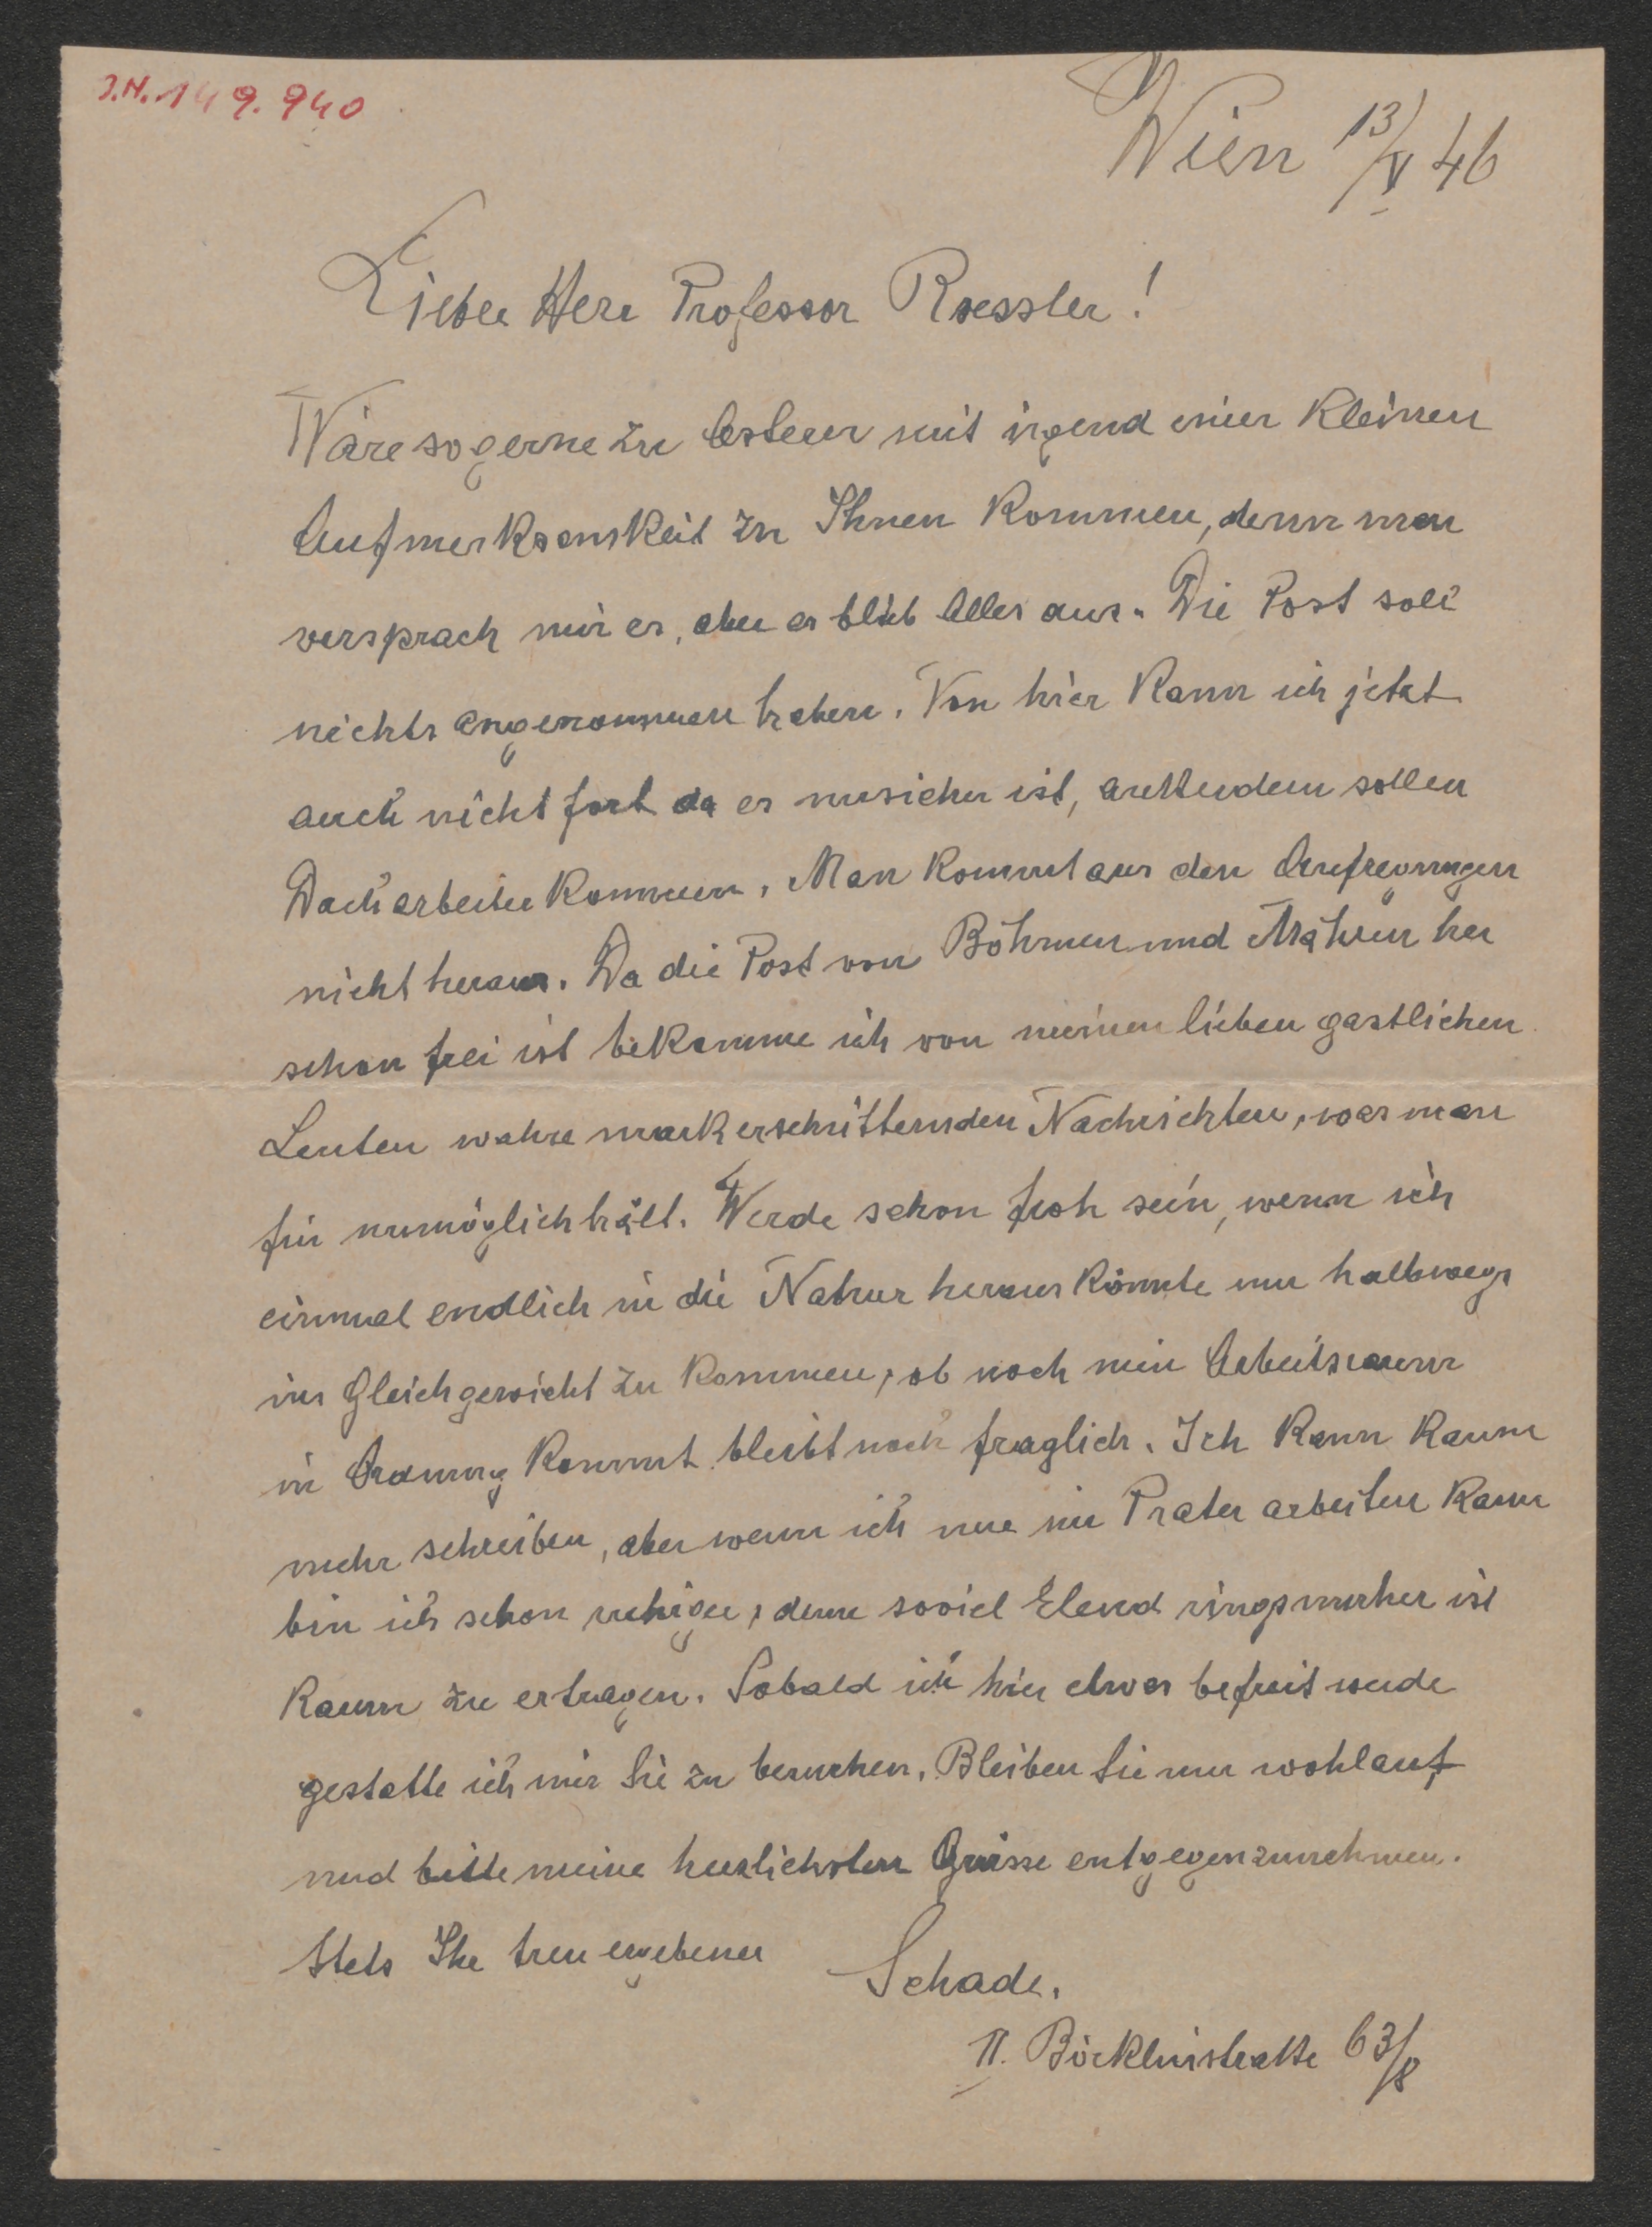 J.N. 149.940
Wien 13/V 46
Lieber Herr Professor Roessler!
Wäre so gerne zu Ostern mit irgend einer kleinen
Aufmerksamkeit zu Ihnen kommen, denn man
versprach mir es, aber es blieb Alles aus. Die Post soll
nichts angenommen haben. Von hier kann ich jetzt
auch nicht fort da es unsicher ist, außerdem sollen
Dacharbeiter kommen. Man kommt aus den Aufregungen
nicht heraus. Da die Post von Böhmen und Mähren her
schon frei ist bekomme ich von meinen lieben gastlichen
Leuten wahre markerschütternden Nachrichten, was man
für unmöglich hält. Werde schon froh sein, wenn ich
einmal endlich in die Natur heraus könnte um halbwegs
ins Gleichgewicht zu kommen, ob noch mein Arbeitsraum
in Ordnung kommt bleibt noch fraglich. Ich kann kaum
mehr schreiben, aber wenn ich nur im Prater arbeiten kann
bin ich schon ruhiger, denn soviel Elend ringsumher ist
kaum zu ertragen. Sobald ich hier etwas befreit werde
gestatte ich mir Sie zu besuchen. Bleiben Sie nur wohlauf
und bitte meine herzlichsten Grüsse entgegenzunehmen.
Stets Ihr treu ergebener Schade.
II. Böcklinstraße 63/8